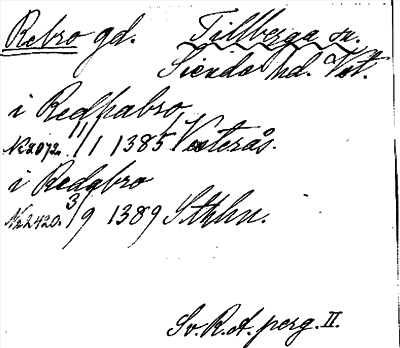 Rebro gd. Tillberga sn.
Siende hd. Vstm.
i Redhabro,
N:2072. 11/1 1385 Västerås.
i Redabro
N:2420. 3/9 1389 Sthlm.
Sv. R. A. perg. II.